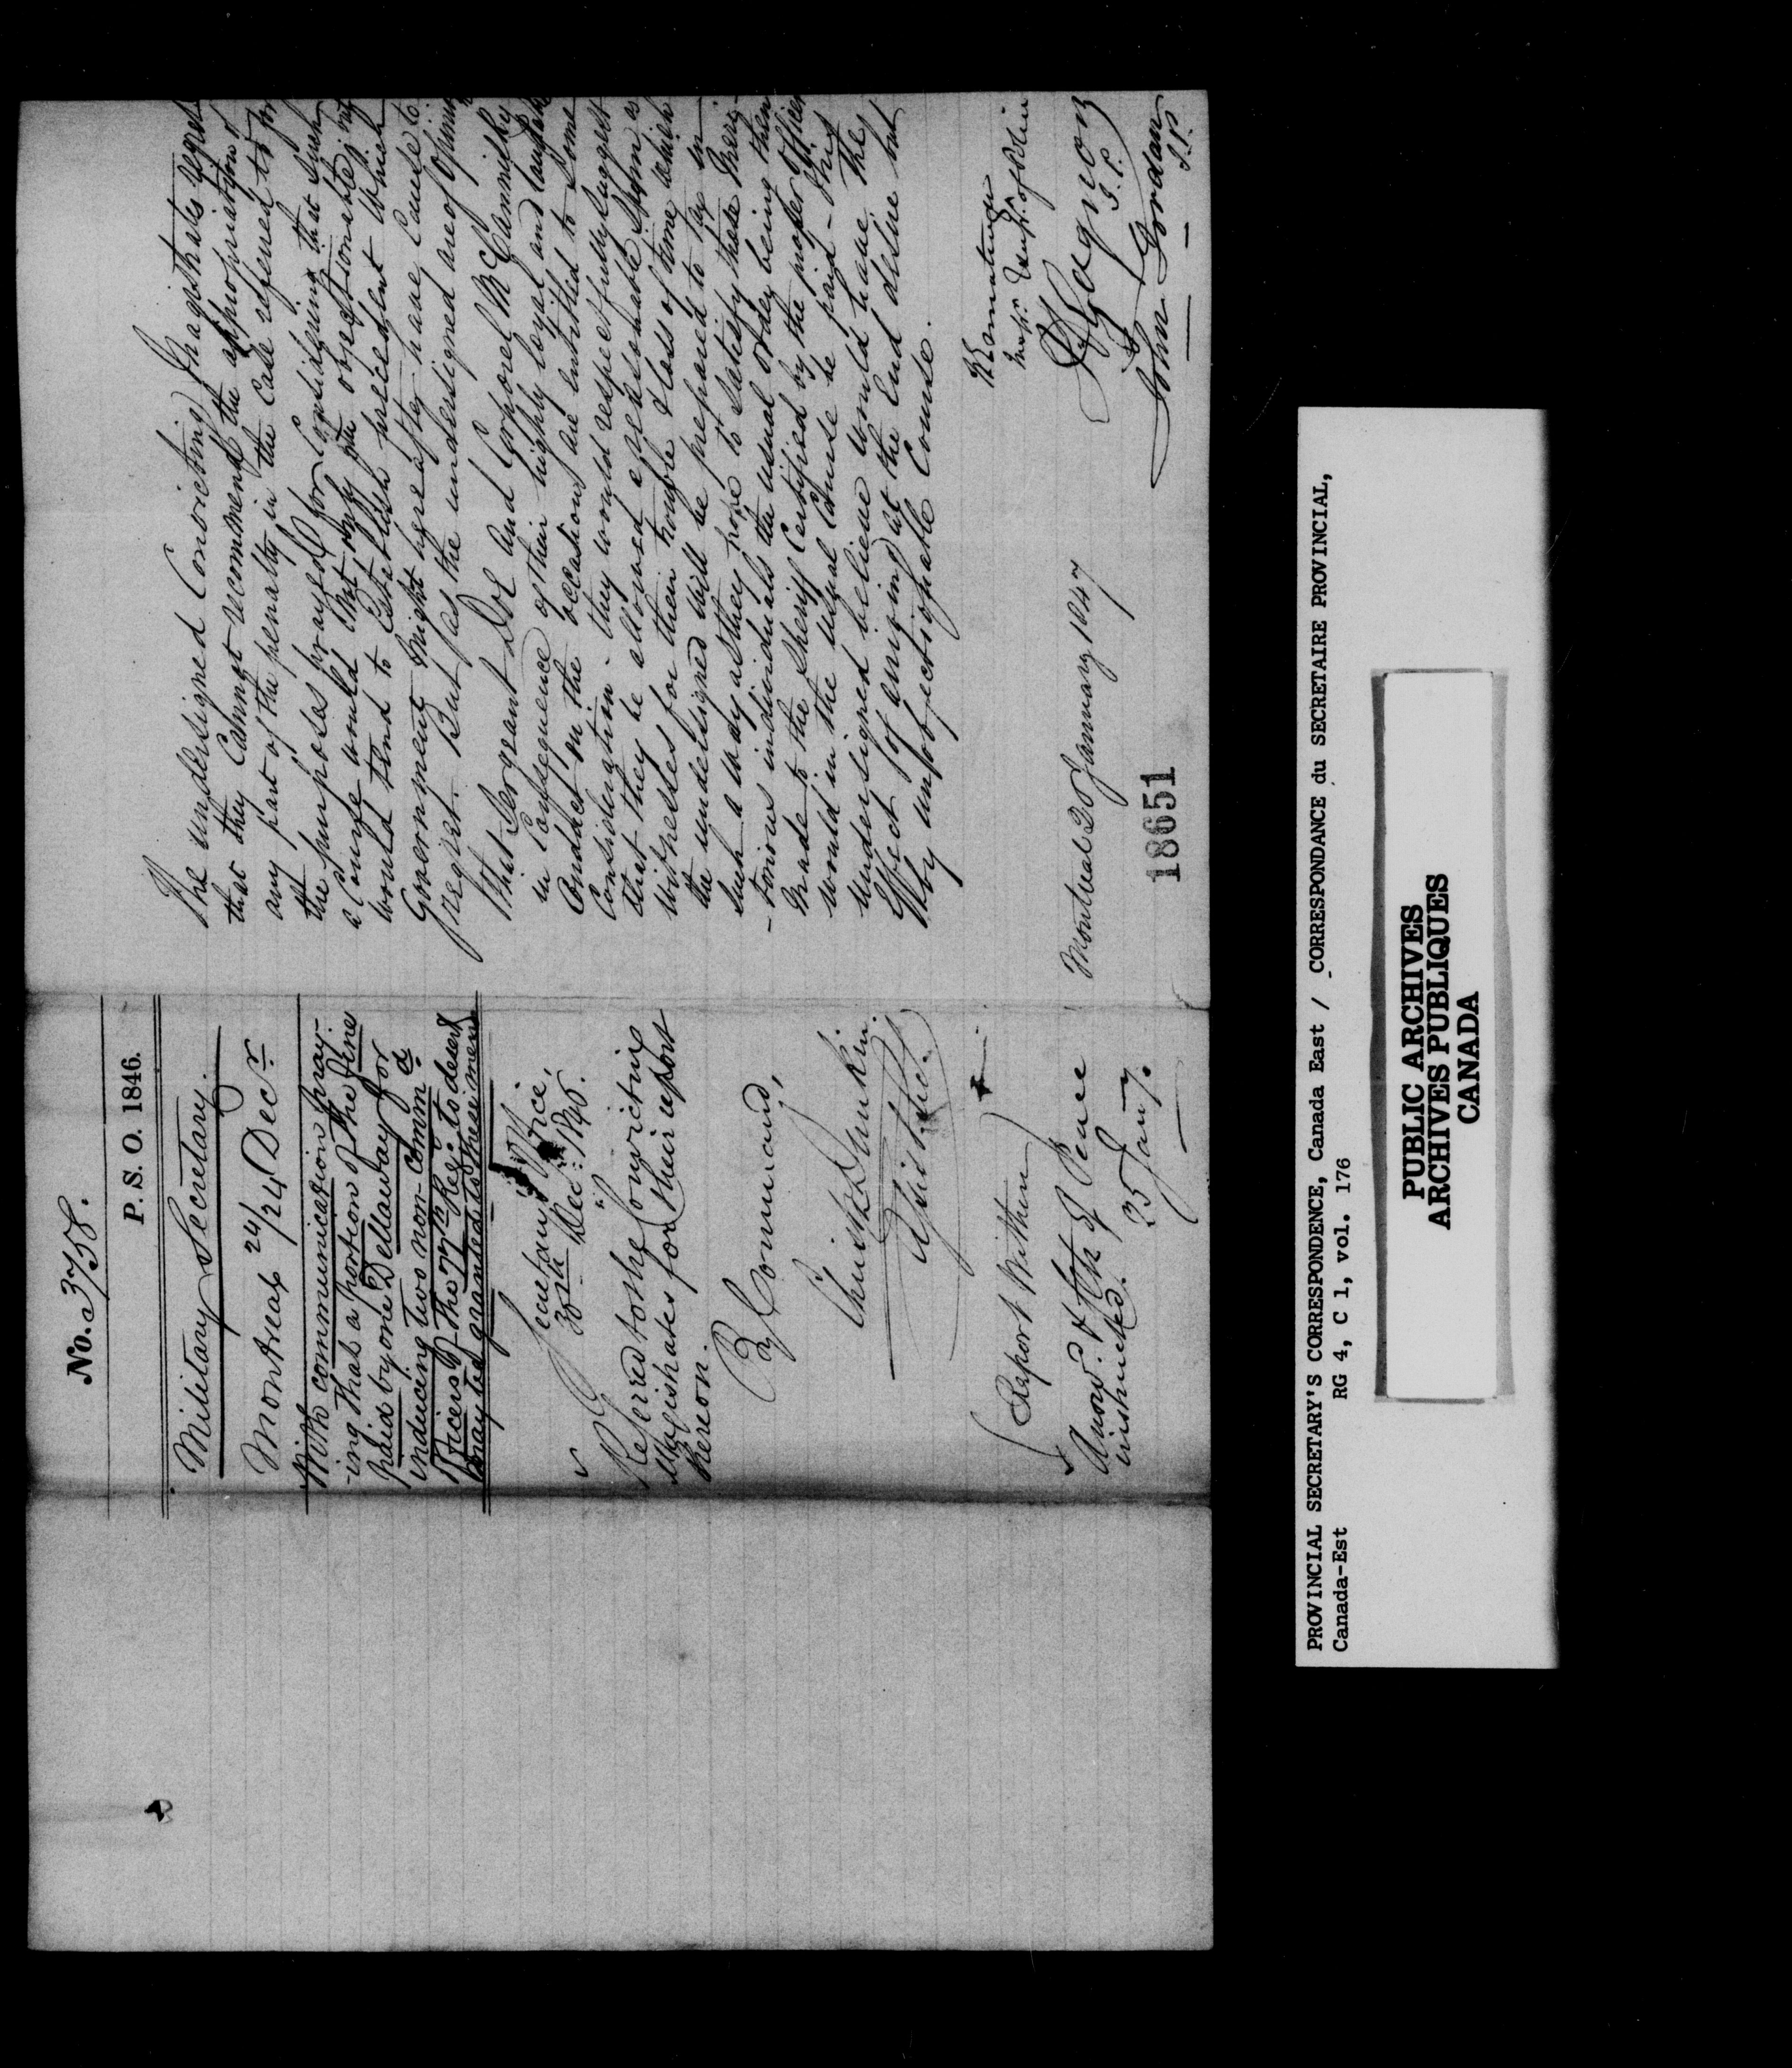 No. 3758.
P. S. O. 1846.
Military Secretary.
Montreal 24/24 Decr
With communication pray-
-ing that a portion of the fine
paid by one Dellaway for
inducing two non-commd
officers of the 77th Regt to desert
may be granted to these men
Secretary's Office,
30th Decr: 1846.
Referred to the Convicting
Magistrates for their report
hereon.
By Command,
Christr Dunkin.
Asst. Secr.
Report within
Answd. & Clk of Peace
instructed.
25 Jany.
The undersigned (Convicting) Magistrates regret
that they Cannot recommend the appropriation of
any part of the penalty in the Case referred to for
the purposes prayed for Considering that such
a Course would (not only be objectionable but
would tend to Establish precedent which
Government might hereafter have Cause to
regret. But as the undersigned are of opinion
that Sergeant Doe and Corporal McCammisky
in Consequence of their highly loyal and laudable
Conduct on the occasion are entitled to some
Consideration - they would respectfully suggest
that they be allowed a reasonable sum as
witnesses for their trouble & loss of time which
the undersigned will be prepared to tax in
such a way as they hope to satisfy these meri-
-torious individuals the usual order being then
made to the Sheriff Certified by the proper Officer
would in the usual Course be paid - this the
undersigned believe would have the
Effect of arriving at the End desired but
by unobjectionable Course.
Montreal 20 January 1847
W Ermatinger
Inspr. & Supt. of Police
Gagnon
J.P.
John Jordan
J.P.
18651
PROVINCIAL SECRETARY'S CORRESPONDENCE, Canada East / CORRESPONDANCE du SECRETAIRE PROVINCIAL,
Canada-Est RG 4, C 1, vol. 176
PUBLIC ARCHIVES
ARCHIVES PUBLIQUES
CANADA